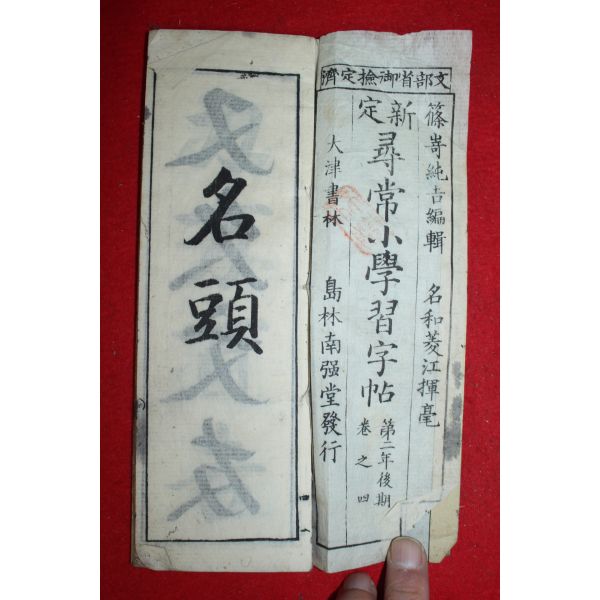 文部省御檢定濟
篠嵜純吉編輯 名和菱江揮毫
新定
尋常小學習字帖
第二年後期
卷之四
大津書林 島林南强堂發行
名頭